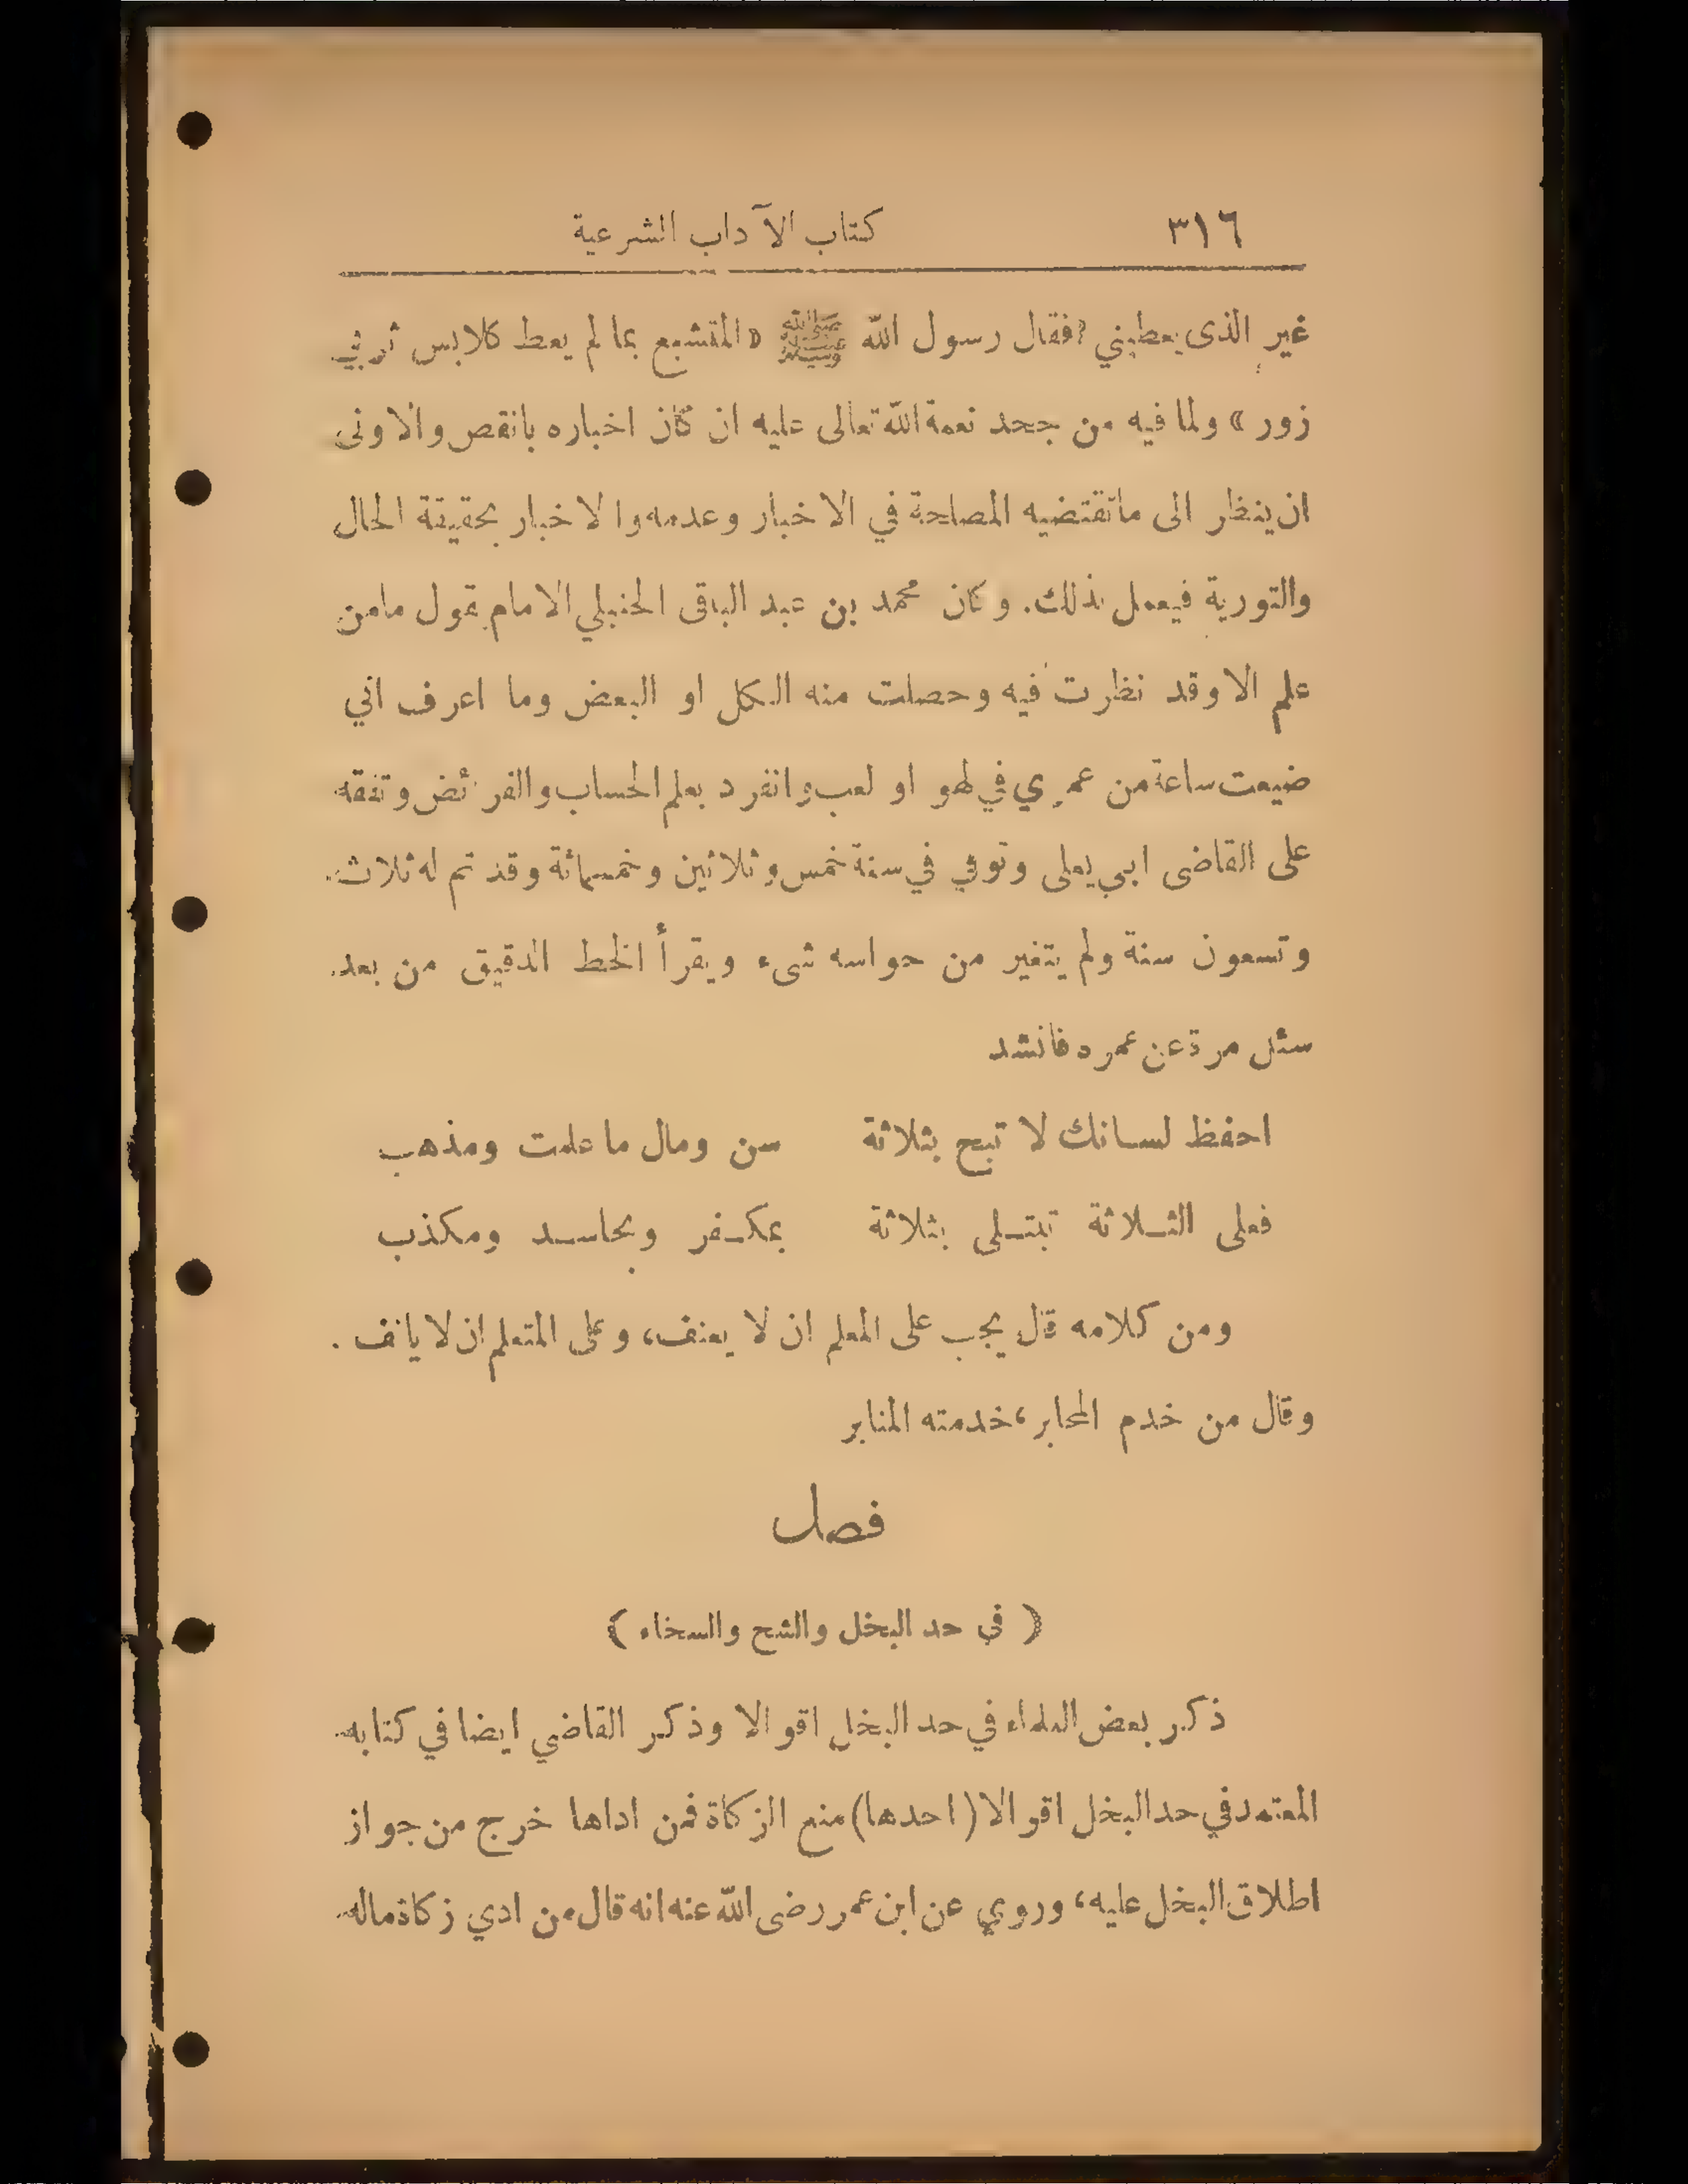 ٣١٦ كتاب الآداب الشرعية
غير الذى يعطيني؟ فقال رسول الله ﷺ «المتشبع بما لم يعط كلابس ثوبي
زور» ولما فيه من جحد نعمة الله تعالى عليه ان كان اخباره بانقص والاولى
ان ينظر الى ماتقتضيه المصلحة في الاخبار وعدمه والاخبار بحقيقة الحال
والتورية فيعمل بذلك. وكان محمد بن عبد الباقى الحنبلي الامام يقول مامن
علم الا وقد نظرت فيه وحصلت منه الكل او البعض وما اعرف اني
ضيعت ساعة من عمري في لهو او لعب وانفرد بعلم الحساب والفرائض وتفقه
على القاضى ابي يعلى وتوفي في سنة خمس وثلاثين وخمسمائة وقد تم له ثلاث
وتسعون سنة ولم يتغير من حواسه شىء ويقرأ الخط الدقيق من بعد
سئل مرة عن عمره فانشد
احفظ لسانك لا تبح بثلاثة سن ومال ما علمت ومذهب
فعلى الثلاثة تبتلى بثلاثة بمكفر وبحاسد ومكذب
ومن كلامه قال يجب على المعلم ان لا يعنف، وعلى المتعلم ان لا يانف .
وقال من خدم المحابر، خدمته المنابر
فصل
( في حد البخل والشح والسخاء )
ذكر بعض العلماء في حد البخل اقوالا وذكر القاضي ايضا في كتابه
المعتمد في حد البخل اقوالا (احدها) منع الزكاة فمن اداها خرج من جواز
اطلاق البخل عليه، وروي عن ابن عمر رضى الله عنه انه قال من ادي زكاة ماله